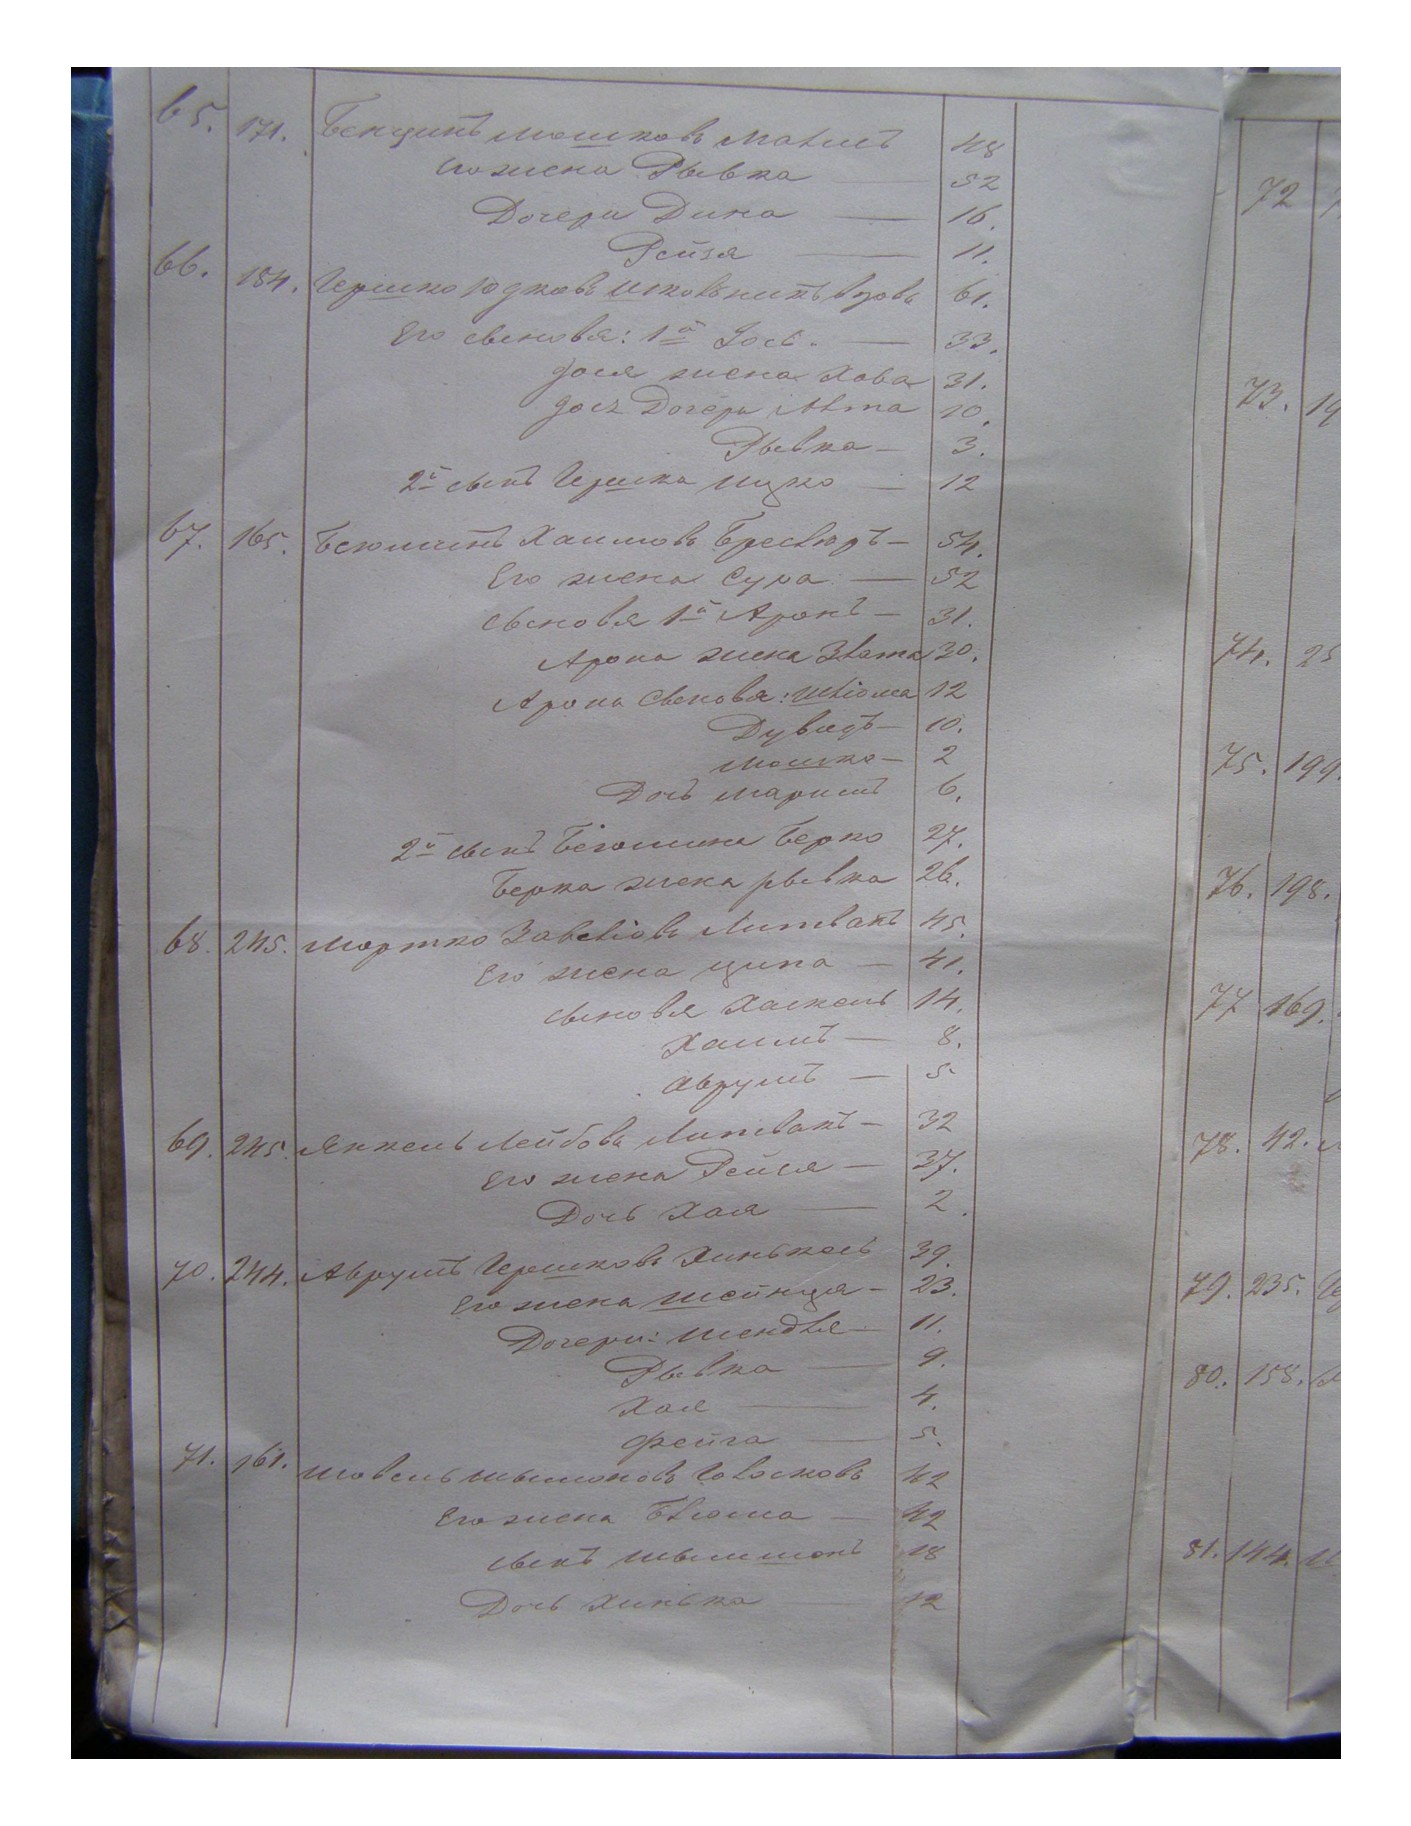 65. 171. Бенцинъ Мошковъ Маламъ 48
Его жена Рывка — 52
Дочери Дина — 16.
Рейзя — 11.
66. 184. Гершко Юдковъ Ицковъ вдовъ 61.
Его сыновья: 1й Іось. — 33.
Іося жена Хова 31.
Іося Дочери Алта 10.
Рывка — 3.
2й сынъ Гершка Ицко — 12
67. 165. Беюминъ Хаимовъ — 54.
Его жена Сура — 52
сыновья 1й Аронъ — 31.
Арона жена Злата 30.
Арона сыновья: Шлiома 12
Дувидъ — 10.
Мошко — 2
Дочь Маримъ 6.
2й сынъ Беюмина Берко 27.
Берка жена Рывка 26.
68. 245. Мортко Завелiовъ Литвакъ 45.
Его жена Ципа — 41.
сыновья Хаскель 14.
Хаимъ — 8.
Аврумъ — 5
69. 245. Янкель Лейбовъ Литвакъ — 32
Его жена Рейзя — 37.
Дочь Хая — 2.
70. 244. Аврумъ Гершковъ Хинькель 39.
Его жена Шейндля — 23.
Дочери: Шендля — 11.
Рывка — 9.
Хая — 4.
Фейга — 5.
71. 161. Шовель Шымоновъ 42
Его жена Блюма — 42
сынъ Шымшонъ 18
Дочь Хинька — 12
72
73. 19
74. 25
75. 199.
76. 198.
77 169.
78. 42.
79. 235.
80. 158.
81. 144.